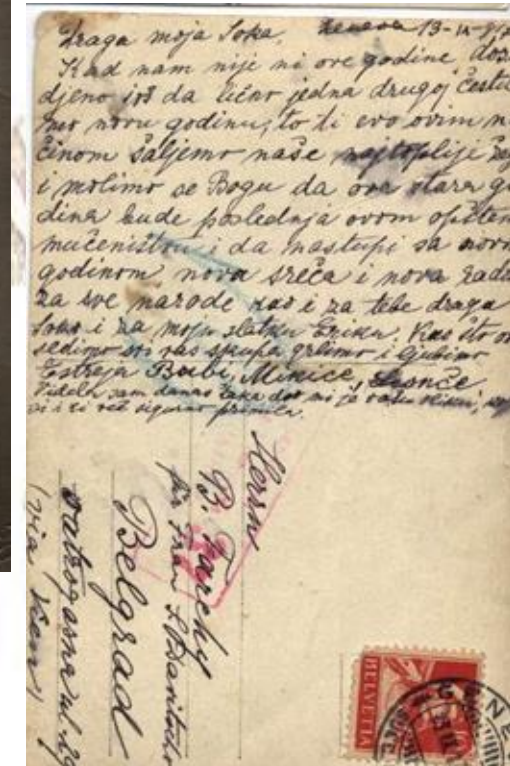 Draga moja Soka, 13-IX-917
Kad nam nije ni ove godine dosu
djeno još da lično jedna drugoj česti
mo novu godinu, to ti evo ovim na
činom šaljemo naše najtoplije
i molimo se Bogu da ova stara go
dina bude poslednja ovom opštem
mučeništvu i da nastupi sa novom
godinom nova sreća i nova rado
za sve narode kao i za tebe draga
Soko i za moju slatku Eriku. Kao što ov
sedimo svi vas skupa grlimo i ljubimo
Bubi, Minice,
sam danas
već sigurno primila.
Herrn
B. Farchy
für Frau S.
Belgrad
vatrogasna ul. 29
(via Wien)
HELVETIA